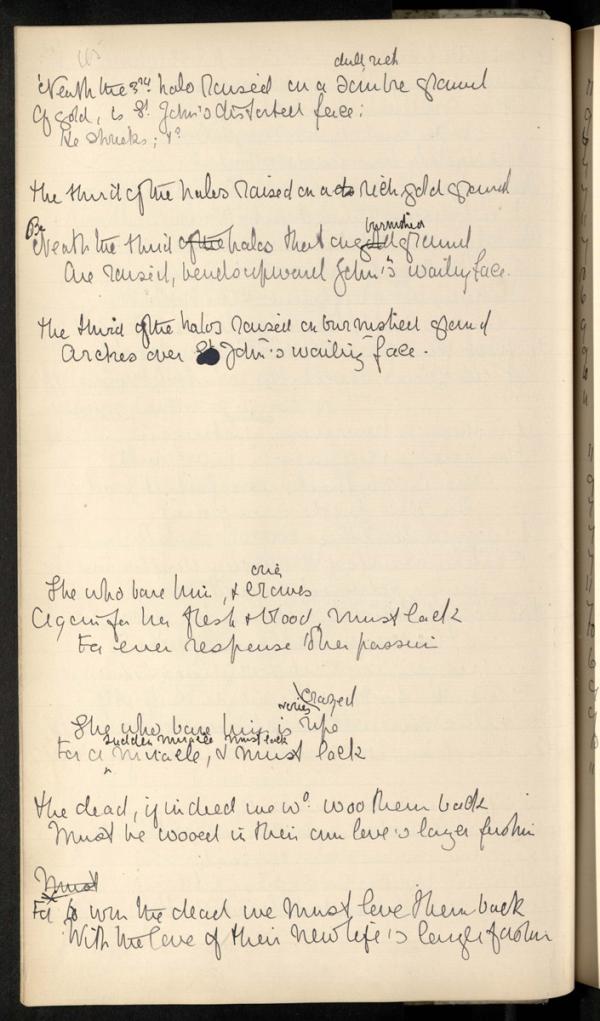 dull rich
'Neath the 3rd halo raised on a sombre ground
Of gold, is St. John's distorted face:
He shrieks; &
The third of the halos raised on a rich gold ground
Be
Neath the third of the halos that on gold ground
burnished
Are raised, bends upward John's wailing face.
The third of the halos raised on burnished ground
Arches over St John's wailing face.
She who bare him, & craves
Again for her flesh & blood, must lack
For ever response to her passion
Crazed
She who bare him is
sudden miracle must lack
For a miracle, & must lack
The dead, if indeed we wd. woo them back
Must be wooed in their own love's larger fashion
Must
For to win the dead we must love them back
With the love of their new life's larger fashion